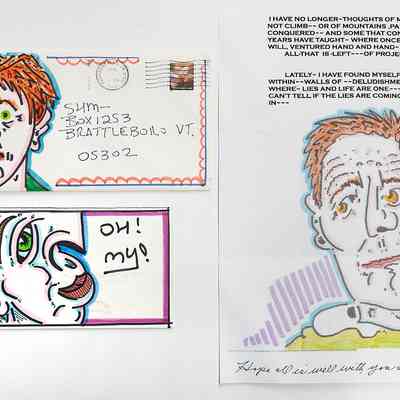 SHM-
BOX 1253
BRATTLEBORO VT.
05302
OH!
my!
I HAVE NO LONGER-THOUGHTS OF M
NOT CLIMB-- OR OF MOUNTAINS ,PA
CONQUERED-- AND SOME THAT CON
YEARS HAVE TAUGHT- WHERE ONCE
WILL, VENTURED HAND AND HAND-
ALL-THAT IS-LEFT---OF PROJE
LATELY- I HAVE FOUND MYSELF
WITHIN--WALLS OF --DELUDISHME
WHERE- LIES AND LIFE ARE ONE---
CAN'T TELL IF THE LIES ARE COMING
IN---
Hope all is well with you